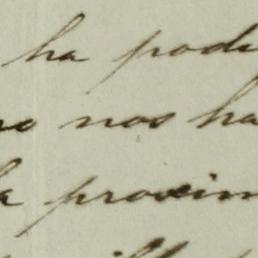 ha podi
no nos ha
a proxim